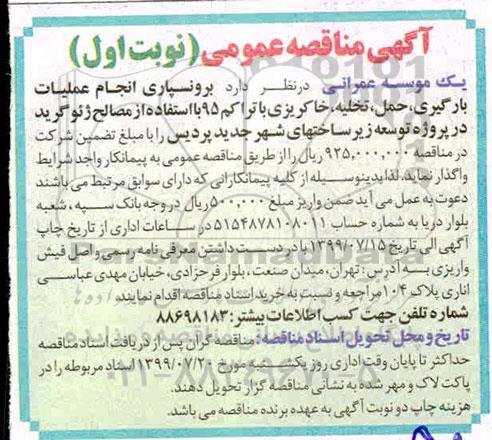 آگهی مناقصه عمومی (نوبت اول)
یک موسسه عمرانی درنظر دارد برونسپاری انجام عملیات
بارگیری، حمل، تخلیه، خاکریزی با تراکم ۹۵ با استفاده از مصالح ژئوگرید
در پروژه توسعه زیرساختهای شهر جدید پردیس را با مبلغ تضمین شرکت
در مناقصه ۹۲۵,۰۰۰,۰۰۰ ریال را از طریق مناقصه عمومی به پیمانکار واجد شرایط
واگذار نماید. لذا بدینوسیله از کلیه پیمانکارانی که دارای سوابق مرتبط می باشند
دعوت به عمل می آید ضمن واریز مبلغ ۵۰۰,۰۰۰ ریال در وجه بانک سپه، شعبه
بلوار دریا به شماره حساب ۵۱۵۴۸۷۸۱۰۸۰۱۱ در ساعات اداری از تاریخ چاپ
آگهی الی تاریخ ۱۳۹۹/۰۷/۱۵ با در دست داشتن معرفی نامه رسمی و اصل فیش
واریزی به آدرس: تهران، میدان صنعت، بلوار فرحزادی، خیابان مهدی عباسی
اناری پلاک ۱۰۴ مراجعه و نسبت به خرید اسناد مناقصه اقدام نمایند.
شماره تلفن جهت کسب اطلاعات بیشتر: ۸۸۶۹۸۱۸۳
تاریخ و محل تحویل اسناد مناقصه: مناقصه گران پس از دریافت اسناد مناقصه
حداکثر تا پایان وقت اداری روز یکشنبه مورخ ۱۳۹۹/۰۷/۲۰ اسناد مربوطه را در
پاکت لاک و مهر شده به نشانی مناقصه گزار تحویل دهند.
هزینه چاپ دو نوبت آگهی به عهده برنده مناقصه می باشد.